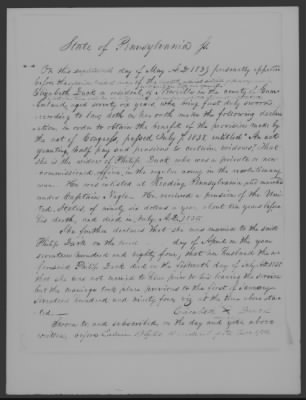 State of Pennsylvania ss
On this eighteenth day of May A.D. 1839 personally appeared
before the
Elizabeth Duck a resident of Newville in the county of Cum-
berland, aged seventy six years, who being first duly sworn
according to law doth on her oath make the following declar-
ation, in order to obtain the benefit of the provision made by
the act of Congress, passed July 7, 1838, entitled "An act
granting half pay and pensions to certain widows," That
she is the widow of Philip Duck who was a private or non-
commissioned officer, in the regular army in the revolutionary
war. He was enlisted at Reading, Pennsylvania, and marched
under Captain Nagle. He received a pension of the Uni-
ted States of ninety six dollars a year about ten years before
his death, and died in July A.D. 1835
She further declares that she was married to the said
Philip Duck on the day of April in the year
seventeen hundred and eighty four; that her husband the a-
foresaid Philip Duck died on the fifteenth day of July A.D. 1835
that she was not married to him prior to his leaving the service
but the marriage took place previous to the first of January
seventeen hundred and ninety four viz at the time above sta-
ted —
Elizabeth X Duck
Sworn to and subscribed, on the day and year above
written, before